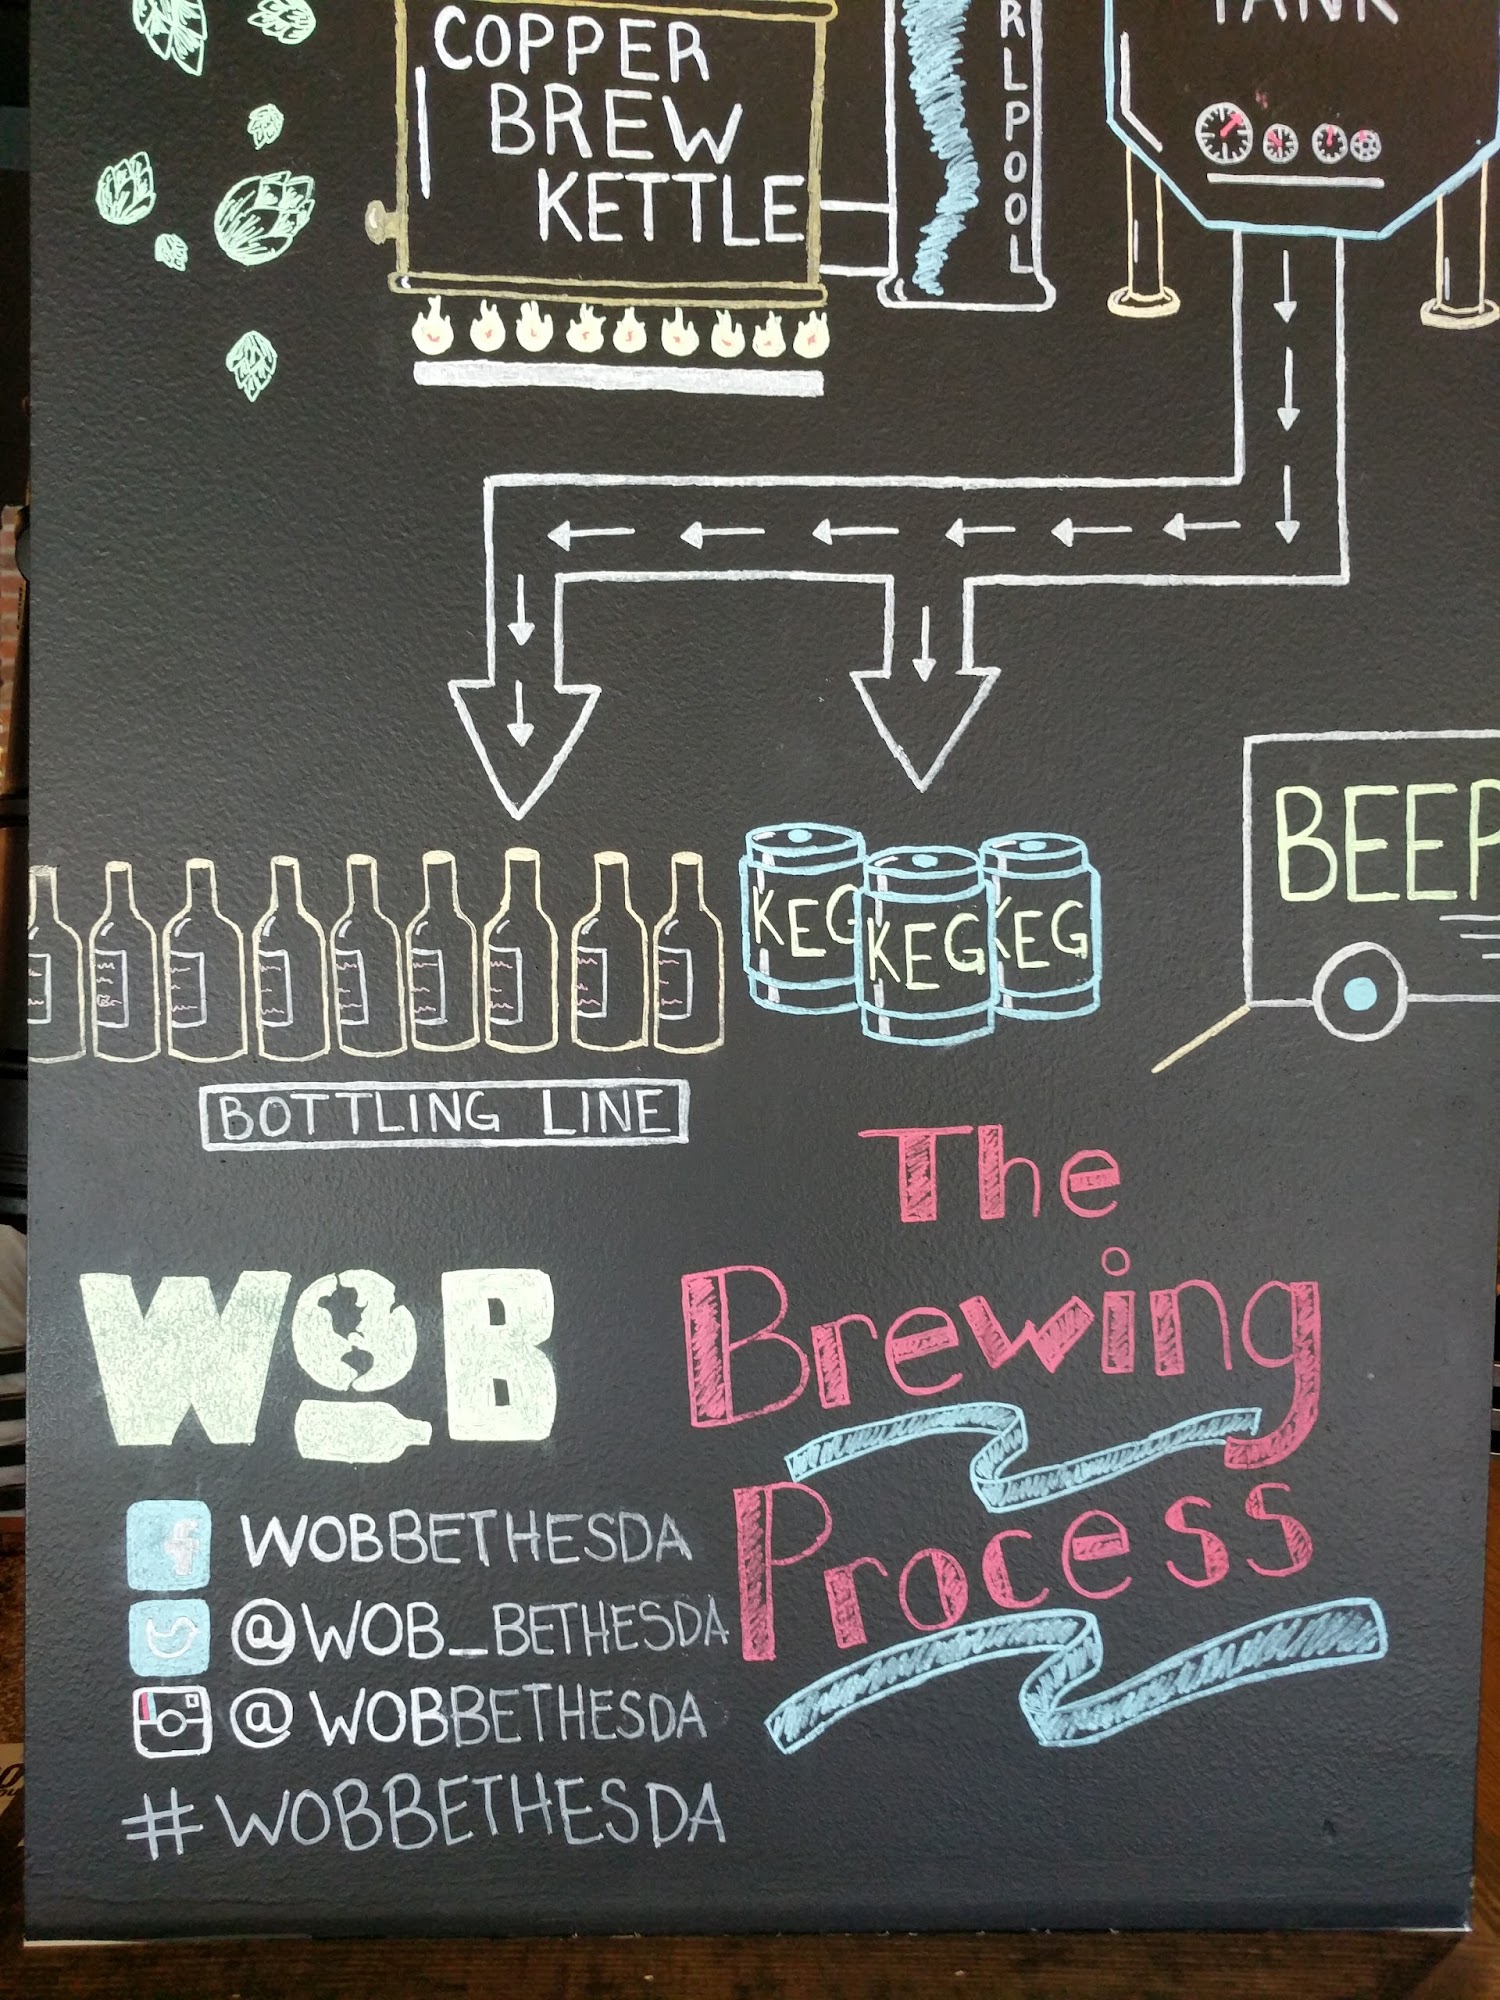 COPPER
BREW
KETTLE
RLPOOL
TANK
KEG
KEG
KEG
BEEP
BOTTLING LINE
The
Brewing
Process
WOB
f WOBBETHESDA
@WOB_BETHESDA
@WOBBETHESDA
#WOBBETHESDA